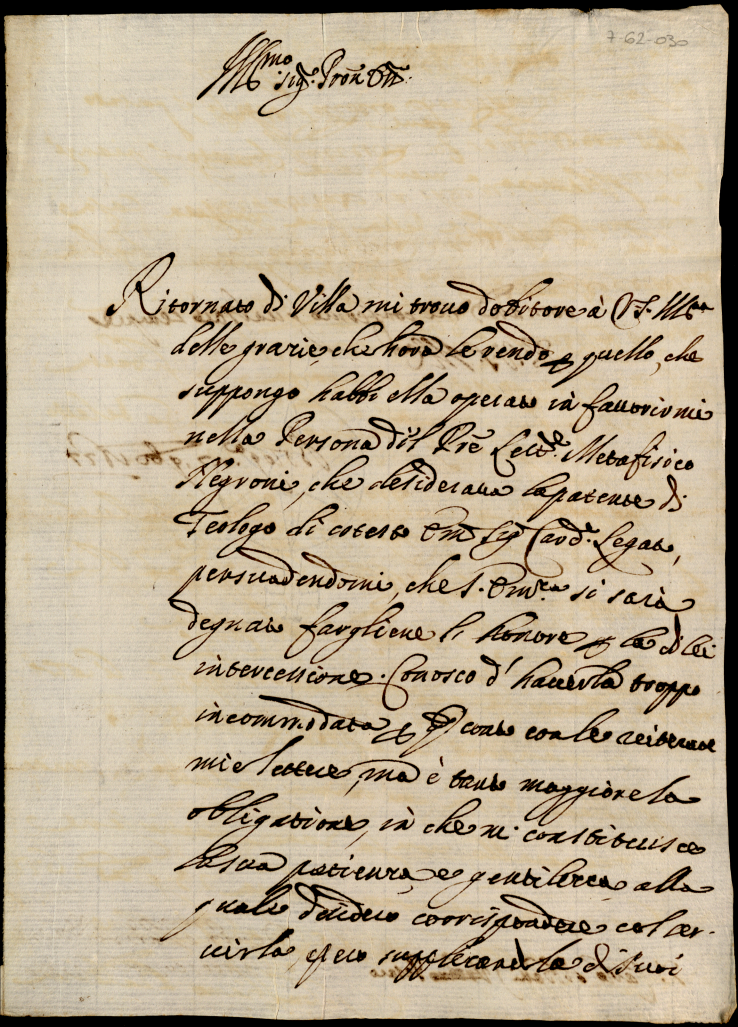 7-62-030
Ill.mo
Sig.r Pron
Ritornato di Villa mi trovo debitore à V.S. Ill.ma
delle grazie, che hora le rendo p quello, che
suppongo habbi ella operato in favorirmi
nella Persona dil Pre Lett.e Metafisico
Negroni, che desiderava la patente di
Teologo di cotesto Em Sig Card.e Legato,
persuadendomi, che S. Em.za si sarà
degnato fargliene l' honore p la di lei
intercessione. Conosco d' haverla troppo
incommodata p conto con le reiterate
mie lettere, ma è tanto maggiore la
obligatione, in che mi constituisce
la sua patienza, e gentilezza alla
quale desidero corrispondere col ser-
virla, e però supplicandola di suoi